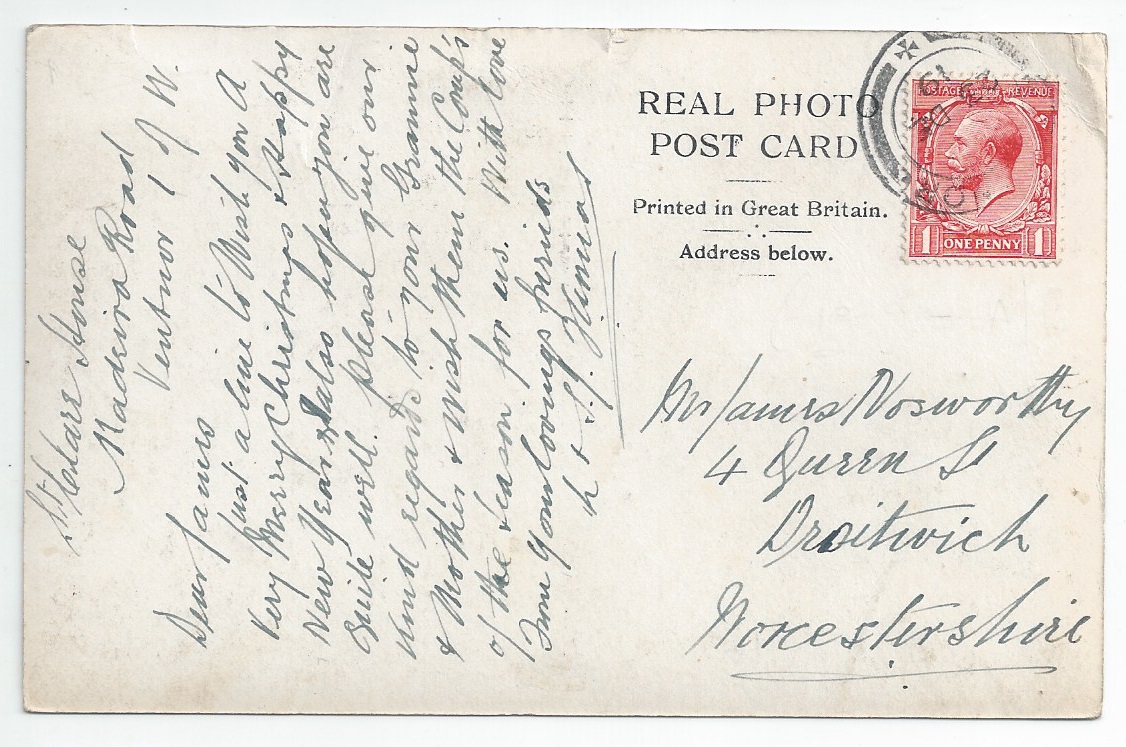 St Clare House
Madeira Road
Ventnor I of W.
Dear James
Just a line to Wish you A
Very Merry Christmas & Happy
New Year & also hope you are
Quite well. please give our
kind regards to your Grannie
& Mother & wish them the Comp's
of the season for us. With love
from Your loving friends
& S. J.
REAL PHOTO
POST CARD
Printed in Great Britain.
Address below.
POSTAGE REVENUE
1 ONE PENNY 1
Mr James Nosworthy
4 Queen St
Droitwich
Worcestershire